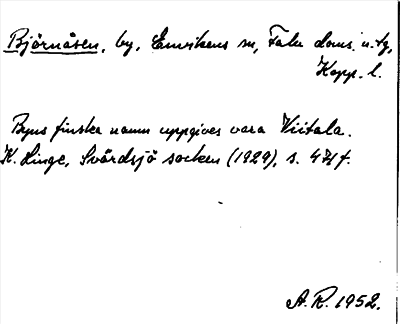 Björnåsen, by, Envikens sn, Falu doms. n. tg,
Kopp. l.
Byns finska namn uppgives vara Viitala.
K. Linge, Svärdsjö socken (1929), s. 471 f.
A. R. 1952.